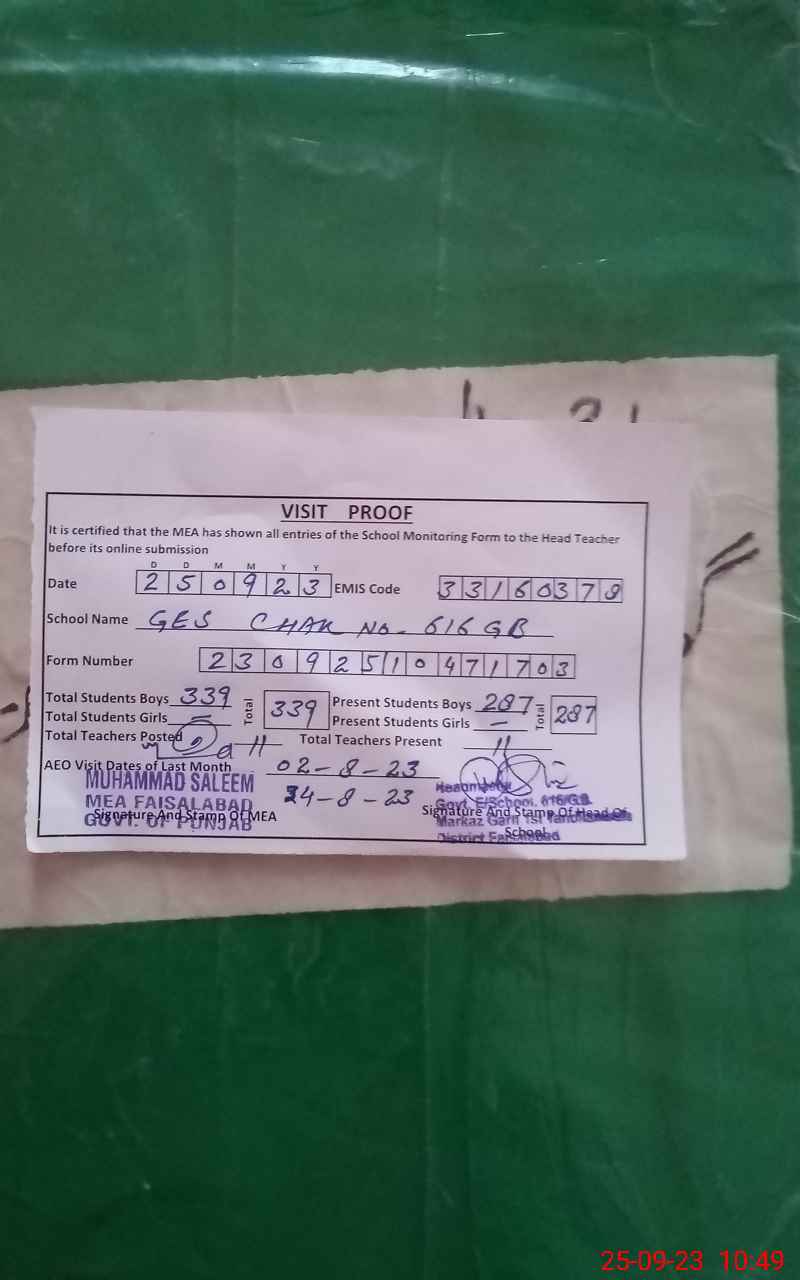 VISIT PROOF
It is certified that the MEA has shown all entries of the School Monitoring Form to the Head Teacher
before its online submission
D D M M Y Y
Date 250923 EMIS Code 33160378
School Name GES CHAK NO- 616 GB
Form Number 230925104717 03
Total Students Boys 339 Total 339 Present Students Boys 287 Total 287
Total Students Girls – Present Students Girls –
Total Teachers Posted 11 Total Teachers Present 11
AEO Visit Dates of Last Month 02-8-23
24-8-23
MUHAMMAD SALEEM
MEA FAISALABAD
GOVT. OF PUNJAB
Signature And Stamp Of MEA
Govt. E/School. 616/GB
Signature And Stamp Of Head Of
School
District Faisalabad
25-09-23 10:49